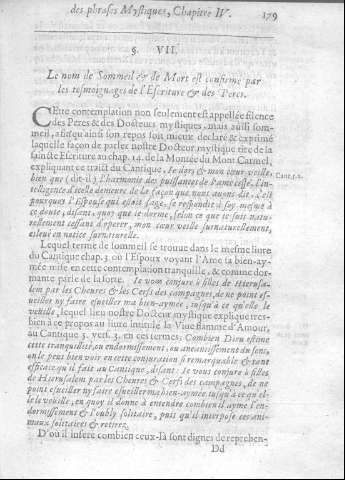 des phrases Mystiques, Chapitre IV. 179
§. VII.
Le nom de Sommeil & de Mort est confirmé par
les tesmoignages de l'Escriture & des Peres.
CEtte contemplation non seulement est appellée silence
des Peres & des Docteurs mystiques, mais aussi som-
meil, afin qu'ainsi son repos soit mieux declaré & exprimé
laquelle façon de parler nostre Docteur mystique tire de la
saincte Escriture au chap. 14. de la Montée du Mont Carmel,
expliquant ce traict du Cantique, Ie dors & mon cœur veille, Cant. 5.2.
bien que (dit-il) l'harmonie des puissances de l'ame cesse, l'in-
telligence d'icelle demeure de la façon que nous auons dit. C'est
pourquoy l'Espouse qui estoit sage, se respondit à soy mesme à
ce doute, disant, quoy que ie dorme, selon ce que ie suis natu-
rellement cessant d'operer, mon cœur veille surnaturellement,
esleué en notice surnaturelle.
Lequel terme de sommeil se trouue dans le mesme liure
du Cantique chap. 3. où l'Espoux voyant l'Ame sa bien-ay-
mée mise en cette contemplation tranquille, & comme dor-
mante parle de la sorte. Ie vous conjure ô filles de Hierusa-
lem par les Cheures & les Cerfs des campagnes, de ne point es-
ueiller ny faire esueiller ma bien-aymée, iusqu'à ce qu'elle le
veüille, lequel lieu nostre Docteur mystique explique tres-
bien à ce propos au liure intitulé la Viue flamme d'Amour,
au Cantique 3. vers 3. en ces termes. Combien Dieu estime
cette tranquilité, cu endormissement, ou aneantissement du sens,
on le peut bien voir en cette conjuration si remarquable & tant
efficace qu'il fait au Cantique, disant: Ie vous conjure ô filles
de Hierusalem par les Cheures & Cerfs des campagnes, de ne
point esueiller ny faire esueiller ma bien-aymée iusqu'à ce qu'el-
le le veüille, en quoy il donne à entendre combien il ayme l'en-
dormissement & l'oubly solitaire, puis qu'il interpose ces ani-
maux solitaires & retirez.
D'où il infere combien ceux-là sont dignes de reprehen-
Dd